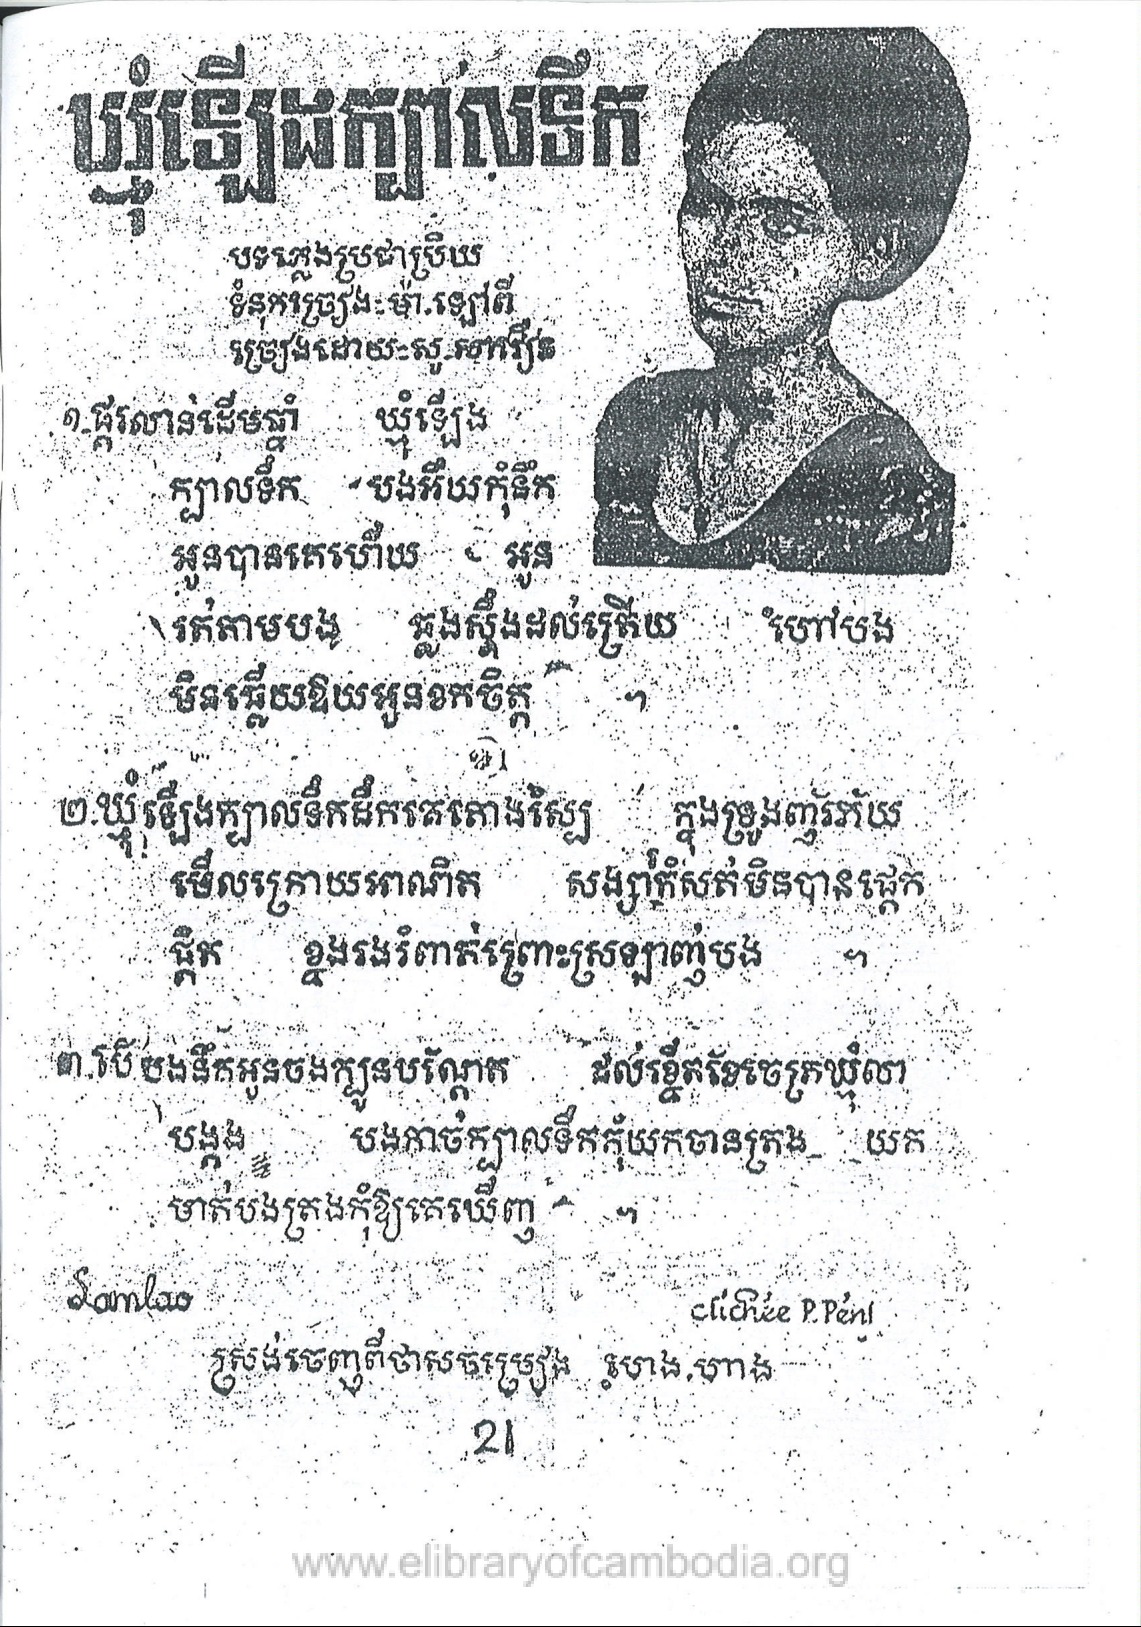 ឃ្មុំឡើងក្បាលទឹក
បទភ្លេងប្រជាប្រិយ
ទំនុកច្រៀង:ម៉ា.ឡៅពី
ច្រៀងដោយ:សូ.សាវឿន
១.ផ្គរលាន់ដើមឆ្នាំ ឃ្មុំឡើង
ក្បាលទឹក បងអើយកុំនឹក
អូនបានគេហើយ អូន
រត់តាមបង ឆ្លងស្ទឹងដល់ត្រើយ ហៅបង
មិនឆ្លើយឱយអូនខកចិត្ត ។
២.ឃ្មុំឡើងក្បាលទឹកដឹកគេតោងស្បៃ ក្នុងទ្រូងញ័រភ័យ
មើលក្រោយអាណិត សង្សារកំសត់មិនបានផ្តេក
ផ្តិត ខ្នងរងរំពាត់ព្រោះស្រឡាញ់បង ។
៣.បើបងនឹកអូនចងក្បួនបណ្តែត ដល់ខ្នើតខែចេត្រឃ្មុំលា
បង្កង បងកាច់ក្បាលទឹកកុំយកចានត្រង យក
មាត់បងត្រងកុំឱ្យគេឃើញ ។
Samlao
clichée P.Pénl
ស្រង់ចេញពីថាសចម្រៀង ហេង.ហាង
21
www.elibraryofcambodia.org